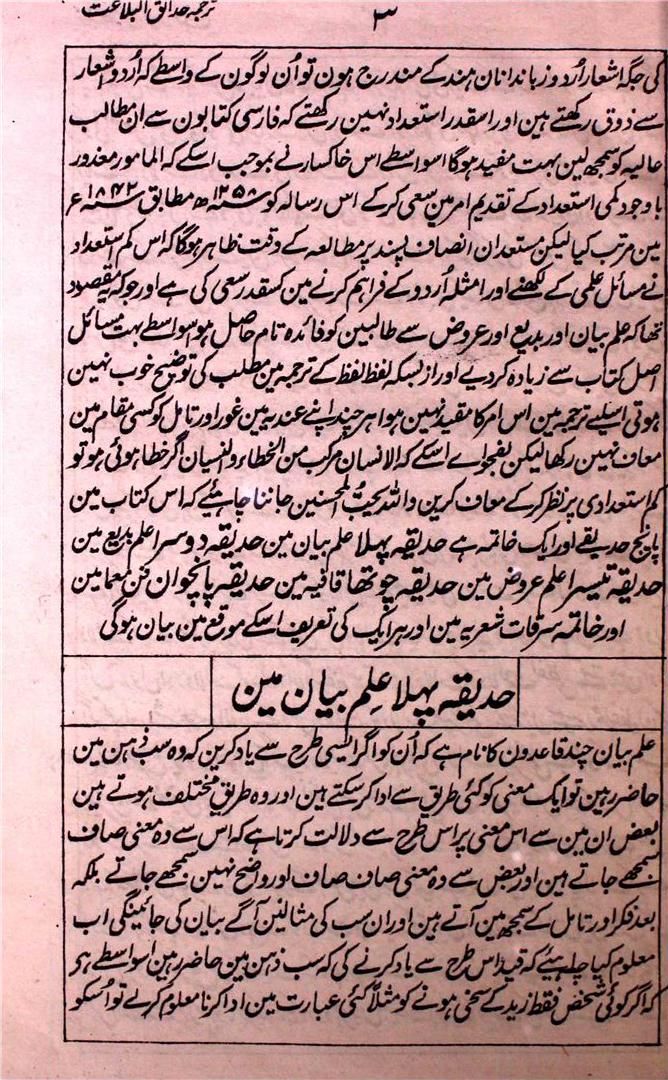 ترجمہ حدائق البلاغت
۳
کی جگہ اشعار اُردو زباندانان ہند کے مندرج ہون تو اُن لوگون کے واسطے کہ اُردو اشعار
سے ذوق رکھتے ہین اور اسقدر استعداد نہین رکھتے کہ فارسی کتابون سے ان مطالب
عالیہ کو سمجھ لین بہت مفید ہوگا اسواسطے اس خاکسار نے بموجب اسکے کہ المامور معذور
باوجود کمی استعداد کے تقدیم امر مین سعی کرکے اس رسالہ کو ۱۲۵۸ھ مطابق ۱۸۴۲ع
مین مرتب کیا لیکن مستعدان انصاف پسند پر مطالعہ کے وقت ظاہر ہوگا کہ اس کم استعداد
نے مسائل علمی کے لکھنے اور امثلہ اُردو کے فراہم کرنے مین کسقدر سعی کی ہے اور جو کہ یہ مقصود
تھا کہ علم بیان اور بدیع اور عروض سے طالبین کو فائدہ تام حاصل ہو اسواسطے بہت مسائل
اصل کتاب سے زیادہ کر دیے اور ازبسکہ لفظ لفظ کے ترجمہ مین مطلب کی توضیح خوب نہین
ہوتی اسلیے ترجمہ مین اس امر کا مقید نہین ہوا ہر چند اپنے عندیہ مین غور اور تامل کو کسی مقام مین
معاف نہین رکھا لیکن بفحواے اسکے کہ الانسان مرکب من الخطاء والنسیان اگر خطا ہوئی ہو تو
کم استعدادی پر نظر کرکے معاف کرین واللہ یحبُّ المحسنین جاننا چاہیے کہ اس کتاب مین
پانچ حدیقے اور ایک خاتمہ ہے حدیقہ پہلا علم بیان مین حدیقہ دوسرا علم بدیع مین
حدیقہ تیسرا علم عروض مین حدیقہ چوتھا قافیہ مین حدیقہ پانچوان فن معما مین
اور خاتمہ سرقات شعریہ مین اور ہر ایک کی تعریف اسکے موقع مین بیان ہوگی
حدیقہ پہلا علمِ بیان مین
علم بیان چند قاعدون کا نام ہے کہ اُن کو اگر ایسی طرح سے یاد کرین کہ وہ سب ذہن مین
حاضر رہین تو ایک معنی کو کئی طریق سے ادا کر سکتے ہین اور وہ طریق مختلف ہوتے ہین
بعض ان مین سے اس معنی پر اس طرح سے دلالت کرتا ہے کہ اس سے وہ معنی صاف
سمجھے جاتے ہین اور بعض سے وہ معنی صاف صاف اور واضح نہین سمجھے جاتے بلکہ
بعد فکر اور تامل کے سمجھ مین آتے ہین اور ان سب کی مثالین آگے بیان کی جائینگی اب
معلوم کیا چاہیئے کہ قید اس طرح سے یاد کرنے کی کہ سب ذہن مین حاضر رہین اسواسطے ہے
کہ اگر کوئی شخص فقط زید کے سخی ہونے کو مثلاً کئی عبارت مین ادا کرنا معلوم کرلے تو اُسکو